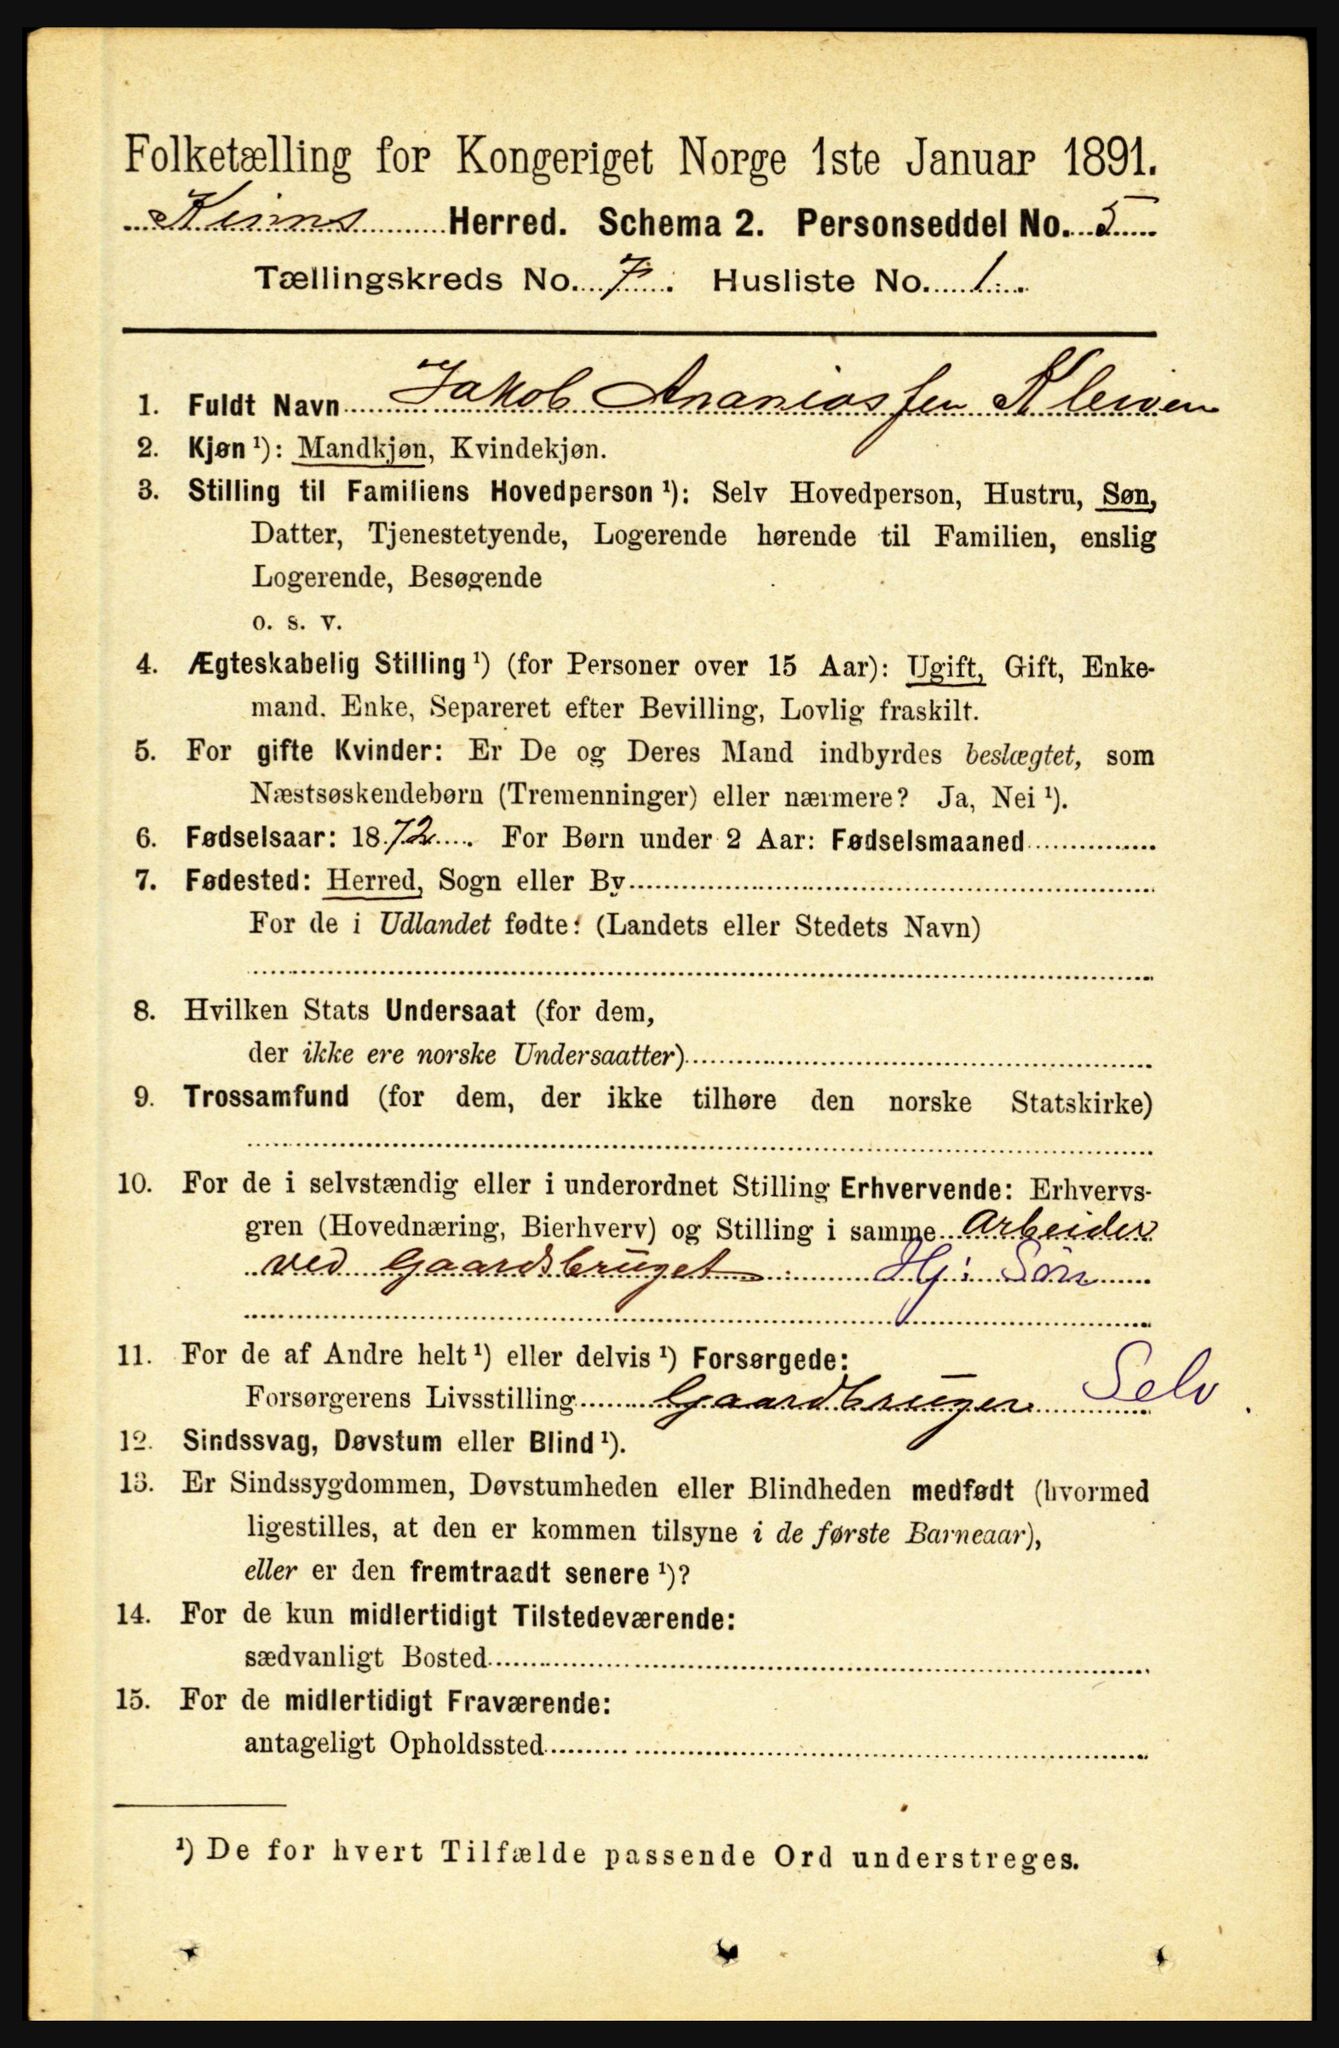 Folketælling for Kongeriget Norge 1ste Januar 1891.
Kinns Herred. Schema 2. Personseddel No. 5
Tællingskreds No. 7. Husliste No. 1.
1. Fuldt Navn Jakob Ananiassen Kleiven
2. Kjøn ¹): Mandkjøn, Kvindekjøn.
3. Stilling til Familiens Hovedperson ¹): Selv Hovedperson, Hustru, Søn,
Datter, Tjenestetyende, Logerende hørende til Familien, enslig
Logerende, Besøgende
o. s. v.
4. Ægteskabelig Stilling ¹) (for Personer over 15 Aar): Ugift, Gift, Enke-
mand. Enke, Separeret efter Bevilling, Lovlig fraskilt.
5. For gifte Kvinder: Er De og Deres Mand indbyrdes beslægtet, som
Næstsøskendebørn (Tremenninger) eller nærmere? Ja, Nei ¹).
6. Fødselsaar: 1872. For Børn under 2 Aar: Fødselsmaaned
7. Fødested: Herred, Sogn eller By
For de i Udlandet fødte: (Landets eller Stedets Navn)
8. Hvilken Stats Undersaat (for dem,
der ikke ere norske Undersaatter)
9. Trossamfund (for dem, der ikke tilhøre den norske Statskirke)
10. For de i selvstændig eller i underordnet Stilling Erhvervende: Erhvervs-
gren (Hovednæring, Bierhverv) og Stilling i samme Arbeider
ved Gaardsbruget Hj: Søn
11. For de af Andre helt ¹) eller delvis ¹) Forsørgede:
Forsørgerens Livsstilling Gaardbruger Selv
12. Sindssvag, Døvstum eller Blind ¹).
13. Er Sindssygdommen, Døvstumheden eller Blindheden medfødt (hvormed
ligestilles, at den er kommen tilsyne i de første Barneaar),
eller er den fremtraadt senere ¹)?
14. For de kun midlertidigt Tilstedeværende:
sædvanligt Bosted
15. For de midlertidigt Fraværende:
antageligt Opholdssted
¹) De for hvert Tilfælde passende Ord understreges.